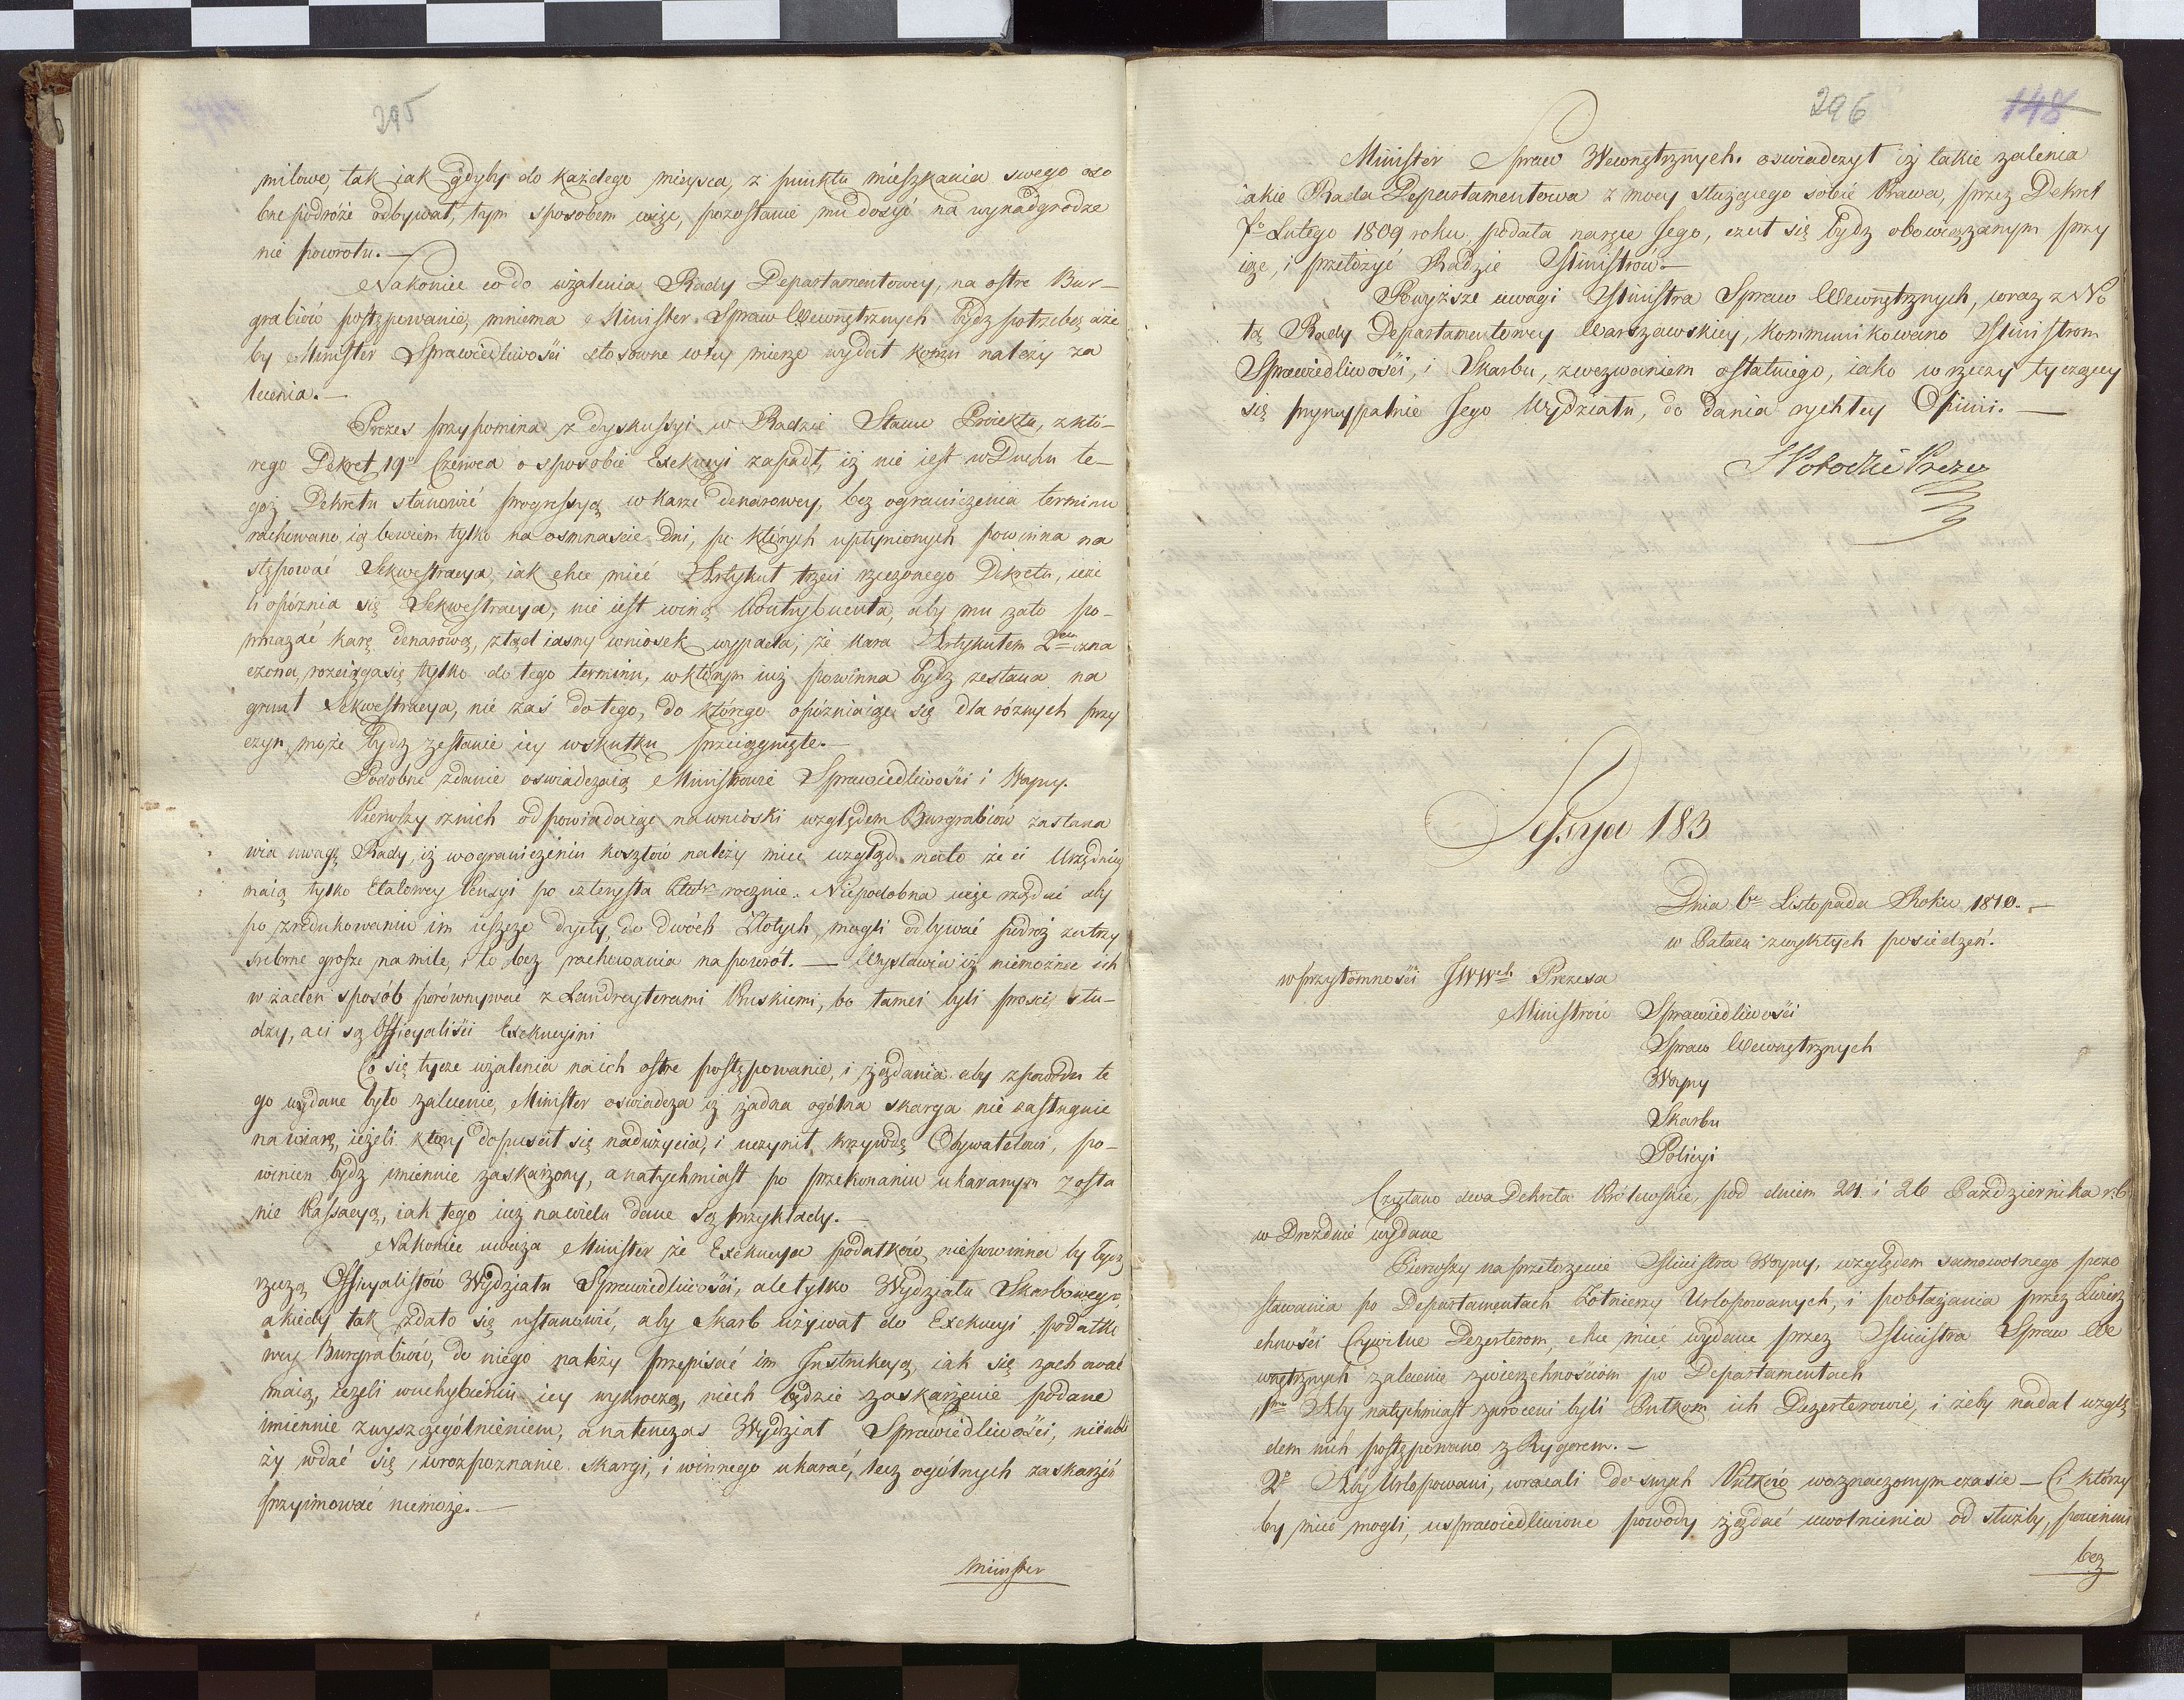 295
milowe, tak iak gdyby do każdego mieysca, z punktu mieszkania swego oso
bne podróże odbywał, tym sposobem więc, pozostanie mu dosyć na wynadgrodze
nie powrotu. —
Nakoniec co do użalenia Rady Departamentowey, na ostre Bur-
grabiów postępowanie, mniema Minister Spraw Wewnętrznych bydź potrzebą aże
by Minister Sprawiedliwości stosowne w tey mierze wydał komu należy za
lecenia. —
Prezes przypomina z dyskussyi w Radzie Stanu Proiektu, z któ-
rego Dekret 19° Czerwca o sposobie Exekucyi zapadł, iż nie iest w Duchu te-
goż Dekretu stanowić progressyą w karze denarowey, bez ograniczenia terminu
rachowano ią bowiem tylko na osmnascie dni, po których upłynionych powinna na
stępować Sekwestracya iak chce mieć Artykuł trzeci rzeczonego Dekretu, ieże
li opóznia się Sekwestracya, nie iest winą Kontrybuenta, aby mu zato po-
mnażać karę denarową, ztąd iasny wniosek wypada, że kara Artykułem 2em ozna
czona, rozciąga się tylko do tego terminu, w którym iuż powinna bydź zesłana na
grunt Sekwestracya, nie zaś do tego, do którego opózniaiąc się dla różnych przy
czyn, może bydź zesłanie iey w skutku przeciągnięte. —
Podobne zdanie oswiadczaią Ministrowie Sprawiedliwości i Woyny.
Pierwszy z nich odpowiadaiąc na wnioski względem Burgrabiów zastana
wia uwagę Rady, iż w ograniczeniu kosztów należy mieć wzgląd na to że ci Urzędnicy
maią tylko Etatowey Pensyi po czterysta Złotych rocznie. Niepodobna więc rządać aby
po zredukowaniu im ieszcze dyety do dwóch Złotych, mogli odbywać podróż za trzy
srebrne grosze na milę, i to bez rachowania na powrót. — Wystawia iż niemożna ich
w żaden sposób porównywać z Landreyterami Pruskiemi, bo tamci byli prosci słu-
dzy, a ci są Officyaliści Exekucyini
Co się tycze użalenia na ich ostre postępowanie, i żądania aby z powodu te
go wydane było zalecenie, Minister oswiadcza iż żadna ogólna skarga nie zasługuie
na wiarę, ieżeli który dopuścił się nadużycia, i uczynił krzywdę Obywatelowi, po-
winien bydź imiennie zaskarżony, a natychmiast po przekonaniu ukaranym zosta
nie Kassacyą, iak tego iuż na wielu dane są przykłady. —
Nakoniec uważa Minister że Exekucya podatków, niepowinna by bydź
rzeczą Officyalistów Wydziału Sprawiedliwości, ale tylko Wydziału Skarbowego,
a kiedy tak zdało się ustanowić, aby Skarb używał do Exekucyi podatko
wey Burgrabiów, do niego należy przepisać im Instrukcyą, iak się zachować
maią, ieżeli w uchybieniu iey wykroczą, niech będzie zaskarżenie podane
imiennie z wyszczególnieniem, a natenczas Wydział Sprawiedliwości, nieubli
ży wdać się w rozpoznanie skargi, i winnego ukarać, lecz ogólnych zaskarżeń
przyimować niemoże. —
Minister
296
148
Minister Spraw Wewnętrznych oswiadczył iż takie żalenia
iakie Rada Departamentowa z mocy służącego sobie Prawa, przez Dekret
7° Lutego 1809 roku, podała na ręce Jego, czuł się bydź obowiązanym przy
iąć, i przełożyć Radzie Ministrów. —
Powyższe uwagi Ministra Spraw Wewnętrznych, wraz z No
tą Rady Departamentowey Warszawskiey, kommunikowano Ministrom
Sprawiedliwości, i Skarbu, z wezwaniem ostatniego, iako w rzeczy tyczącey
się pryncypalnie Jego Wydziału, do dania rychłey Opinii. —
S Potocki Prezes
Sessya 183
Dnia 6° Listopada Roku 1810. —
w Pałacu zwykłych posiedzeń.
w przytomności JWWch Prezesa
Ministrów Sprawiedliwości
Spraw Wewnętrznych
Woyny
Skarbu
Policyi
Czytano dwa Dekreta Królewskie, pod dniem 24 i 26 Października r.b.
w Dreźdnie wydane
Pierwszy na przełożenie Ministra Woyny, względem samowolnego pozo
stawania po Departamentach Żołnierzy Urlopowanych, i pobłażania przez Zwierz
chności Cywilne Dezerterom, chce mieć wydane przez Ministra Spraw We
wnętrznych zalecenie zwierzchnościom po Departamentach
1mo Aby natychmiast zwroceni byli Pułkom ich Dezerterowie, i żeby nadal wzglę
dem nich postępowano z Rygorem. —
2° Aby Urlopowani, wracali do swych Pułków w oznaczonym czasie — Ci którzy
by mieć mogli, usprawiedliwione powody żądać uwolnienia od służby, powinni
bez